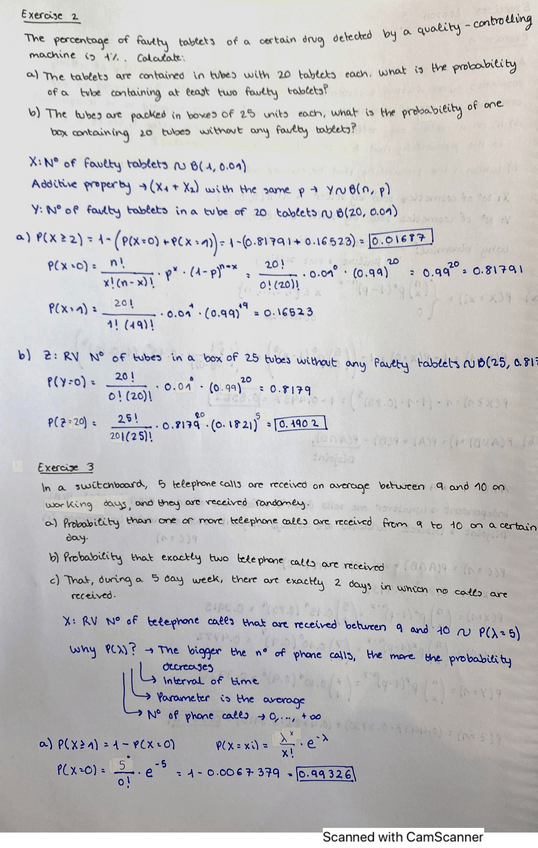 Exercise 2
The percentage of faulty tablets of a certain drug detected by a quality-controlling
machine is 1%. Calculate:
a) The tablets are contained in tubes with 20 tablets each, what is the probability
of a tube containing at least two faulty tablets?
b) The tubes are packed in boxes of 25 units each, what is the probability of one
box containing 20 tubes without any faulty tablets?
X: Nº of faulty tablets ~ B(1, 0.01)
Additive property → (X1 + X2) with the same p → Y ~ B(n, p)
Y: Nº of faulty tablets in a tube of 20 tablets ~ B(20, 0.01)
a) P(X≥2) = 1 - (P(X=0) + P(X=1)) = 1-(0.81791 + 0.16523) = 0.01687
P(X=0) = n! / x!(n-x)! · p^x · (1-p)^n-x = 20! / 0!(20)! · 0.01^0 · (0.99)^20 = 0.99^20 = 0.81791
P(X=1) = 20! / 1!(19)! · 0.01^1 · (0.99)^19 = 0.16523
b) Z: RV Nº of tubes in a box of 25 tubes without any faulty tablets ~ B(25, 0.817
P(Y=0) = 20! / 0!(20)! · 0.01^0 · (0.99)^20 = 0.8179
P(Z=20) = 25! / 20!(25)! · 0.8179^20 · (0.1821)^5 = 0.1902
Exercise 3
In a switchboard, 5 telephone calls are received on average between 9 and 10 on
working days, and they are received randomly.
a) Probability than one or more telephone calls are received from 9 to 10 on a certain
day.
b) Probability that exactly two telephone calls are received
c) That, during a 5 day week, there are exactly 2 days in which no calls are
received.
X: RV Nº of telephone calls that are received between 9 and 10 ~ P(λ=5)
Why P(λ)? → The bigger the nº of phone calls, the more the probability
decreases
→ Interval of time
→ Parameter is the average
→ Nº of phone calls → 0,..., +∞
a) P(X≥1) = 1 - P(X=0) P(X=xi) = λ^x / x! · e^-λ
P(X=0) = 5^0 / 0! · e^-5 = 1 - 0.0067379 = 0.99326
Scanned with CamScanner